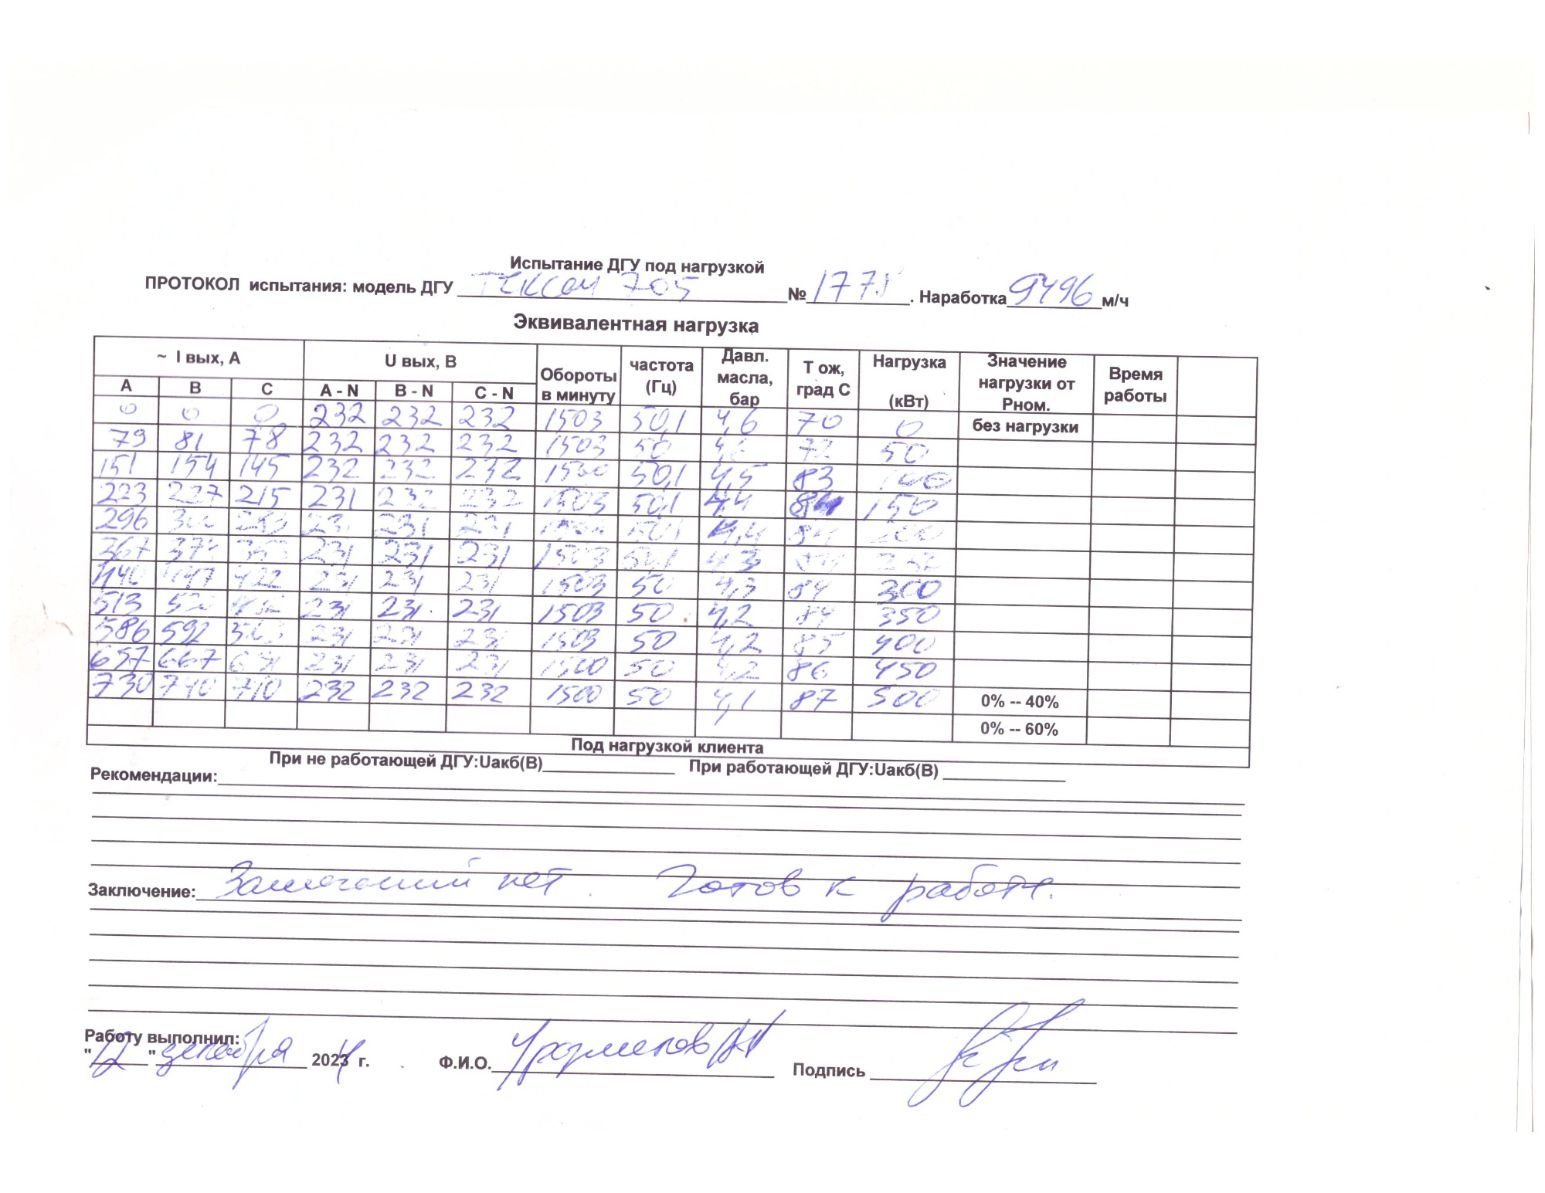 Испытание ДГУ под нагрузкой
ПРОТОКОЛ испытания: модель ДГУ Тексан 705 № Наработка 9496 м/ч
Эквивалентная нагрузка
~ I вых, А U вых, В Обороты в минуту частота (Гц) Давл. масла, бар Т ож, град С Нагрузка (кВт) Значение нагрузки от Рном. Время работы
А В С A - N B - N C - N
0 0 0 232 232 232 1503 50,1 4,6 70 0 без нагрузки
79 81 78 232 232 232 1503 50 4,6 72 50
151 154 145 232 232 232 1500 50,1 4,5 83 100
223 227 215 231 232 232 1503 50,1 4,4 84 150
296 231 231 231 50,1 4,4 84 200
367 231 231 231 1503 50,1 4,3
440 447 422 231 231 231 1503 50 4,3 84 300
513 231 231 231 1503 50 4,2 84 350
586 592 231 231 231 1503 50 4,2 85 400
657 667 231 231 231 1500 50 4,2 86 450
730 740 710 232 232 232 1500 50 4,1 87 500 0% -- 40%
0% -- 60%
Под нагрузкой клиента
При не работающей ДГУ:Uакб(В) При работающей ДГУ:Uакб(В)
Рекомендации:
Заключение: Замечаний нет. Готов к работе.
Работу выполнил:
"12" декабря 2024 г. Ф.И.О. Подпись